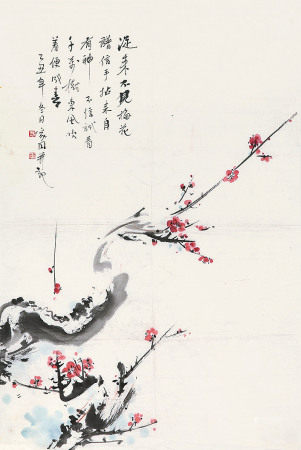 从来不见梅花
谱信手拈来自
有神不信试看
千万树东风吹
着便成春
乙丑年冬月